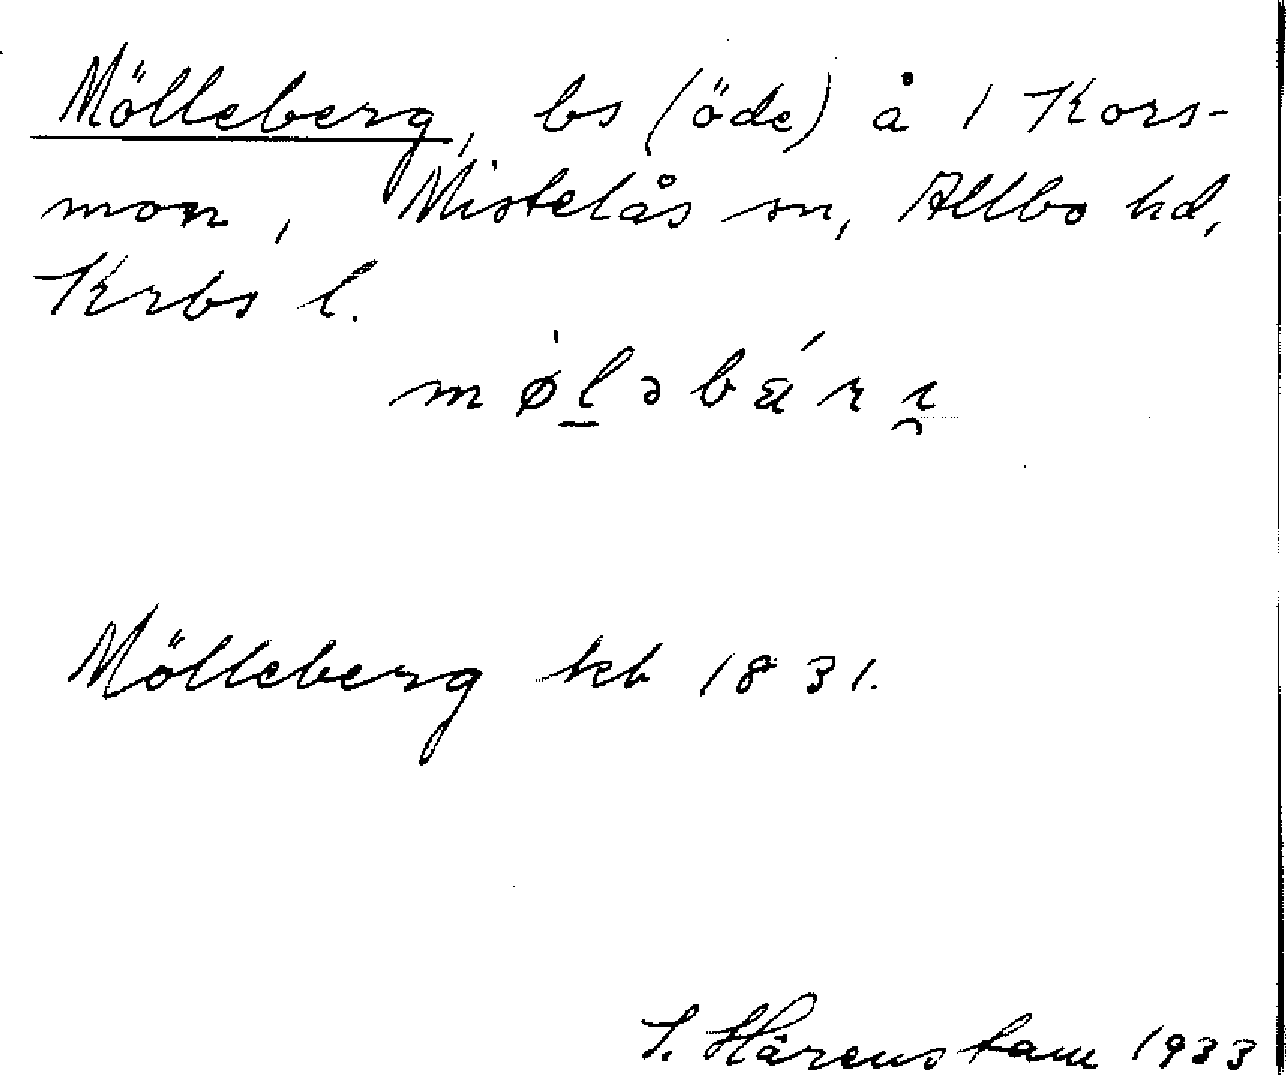 Mölleberg, bs (öde) å 1 Kors-
mon, Mistelås sn, Allbo hd,
Krbs l.
mø̍l̲əbǽrı̯
Mölleberg kb 1831.
Härenstam 1933